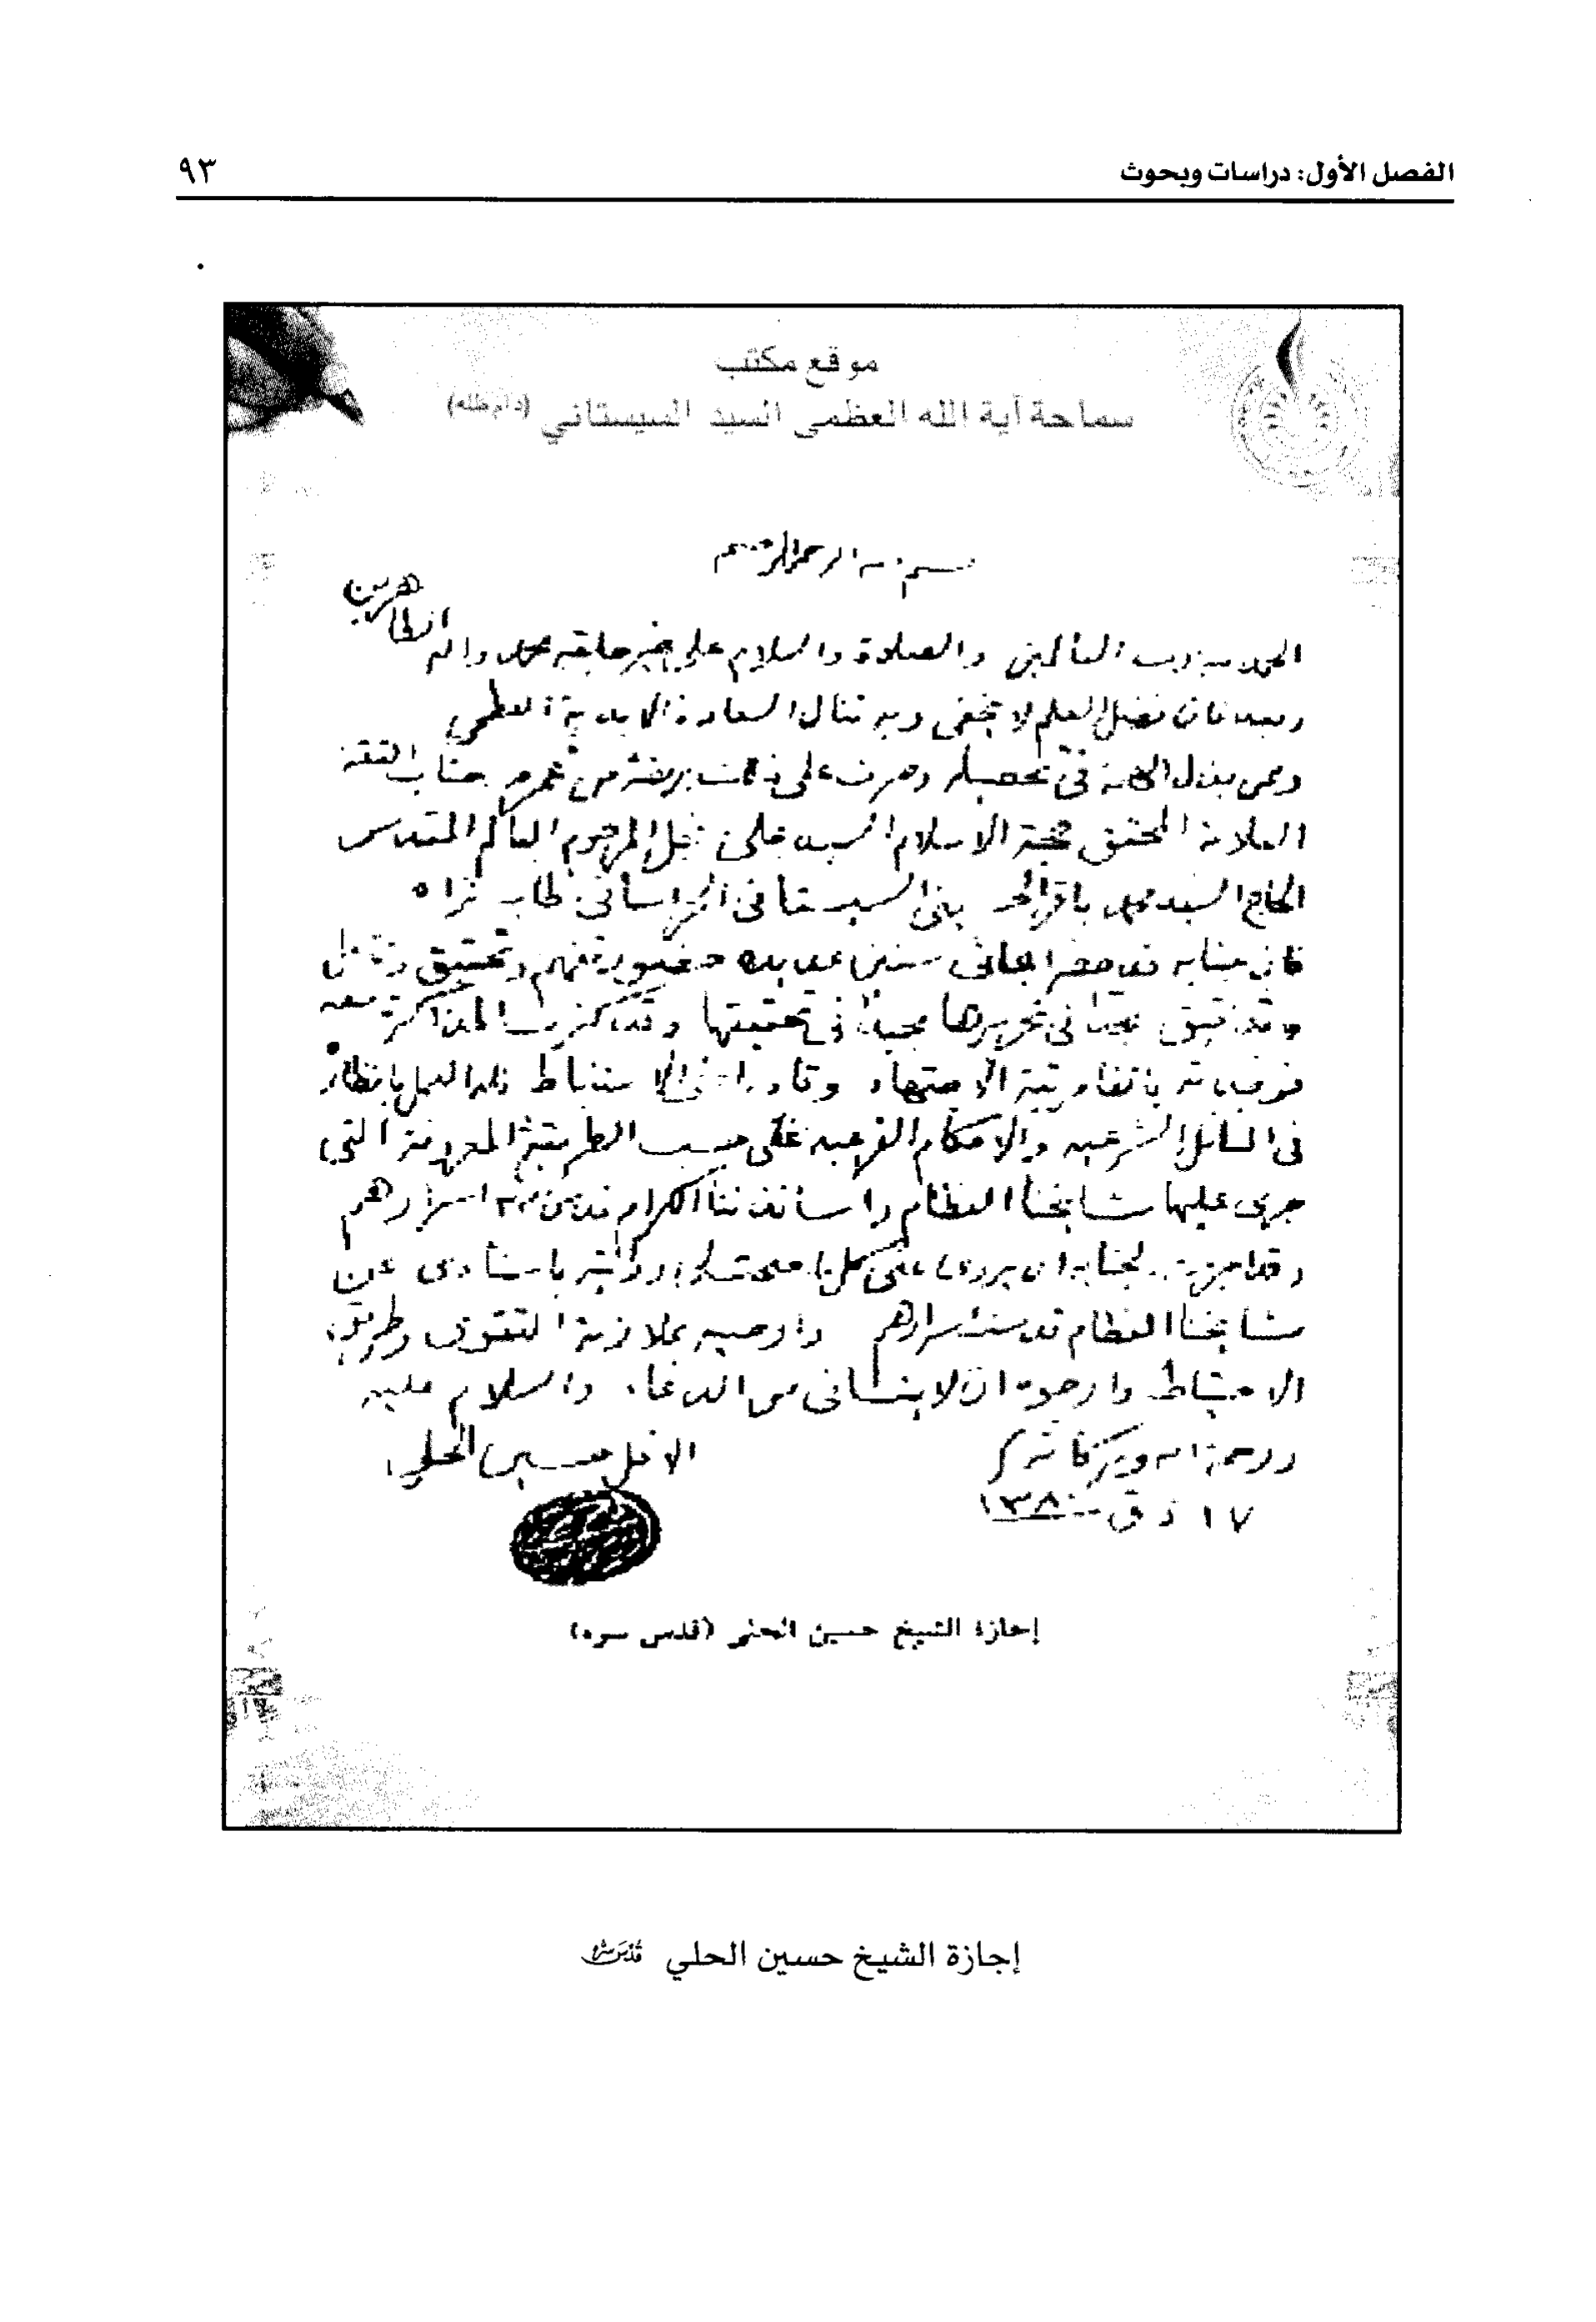 الفصل الأول: دراسات وبحوث
٩٣
موقع مكتب
سماحة آية الله العظمى السيد السيستاني (دام ظله)
بسم الله الرحمن الرحيم
الحمد لله رب العالمين والصلاة والسلام على خير خلقه محمد واله الطاهرين
وبعد فان فضل العلم لا يخفى وبه تنال السعادة الابدية العظمى
وممن بذل الهمة في تحصيله وصرف على ذلك برهة من عمره جناب الثقة
العلامة المحقق حجة الاسلام السيد علي نجل المرحوم العالم المقدس
الحاج السيد محمد باقر الحسيني السيستاني الخراساني طاب ثراه
فان جنابه قد حضر ابحاثي سنين عديدة حضور تفهم وتحقيق وتأمل
وتدقيق مجدا في تحريرها مجيدا في تحقيقها وقد كثرت المذاكرة معه
فوجدته بالغا رتبة الاجتهاد وقادرا على الاستنباط فله العمل بانظاره
في المسائل الشرعيه والاحكام الفرعيه على حسب الطريقة المعروفة التي
جرى عليها مشايخنا العظام واساتذتنا الكرام قدس الله اسرارهم
وقد اجزت لجنابه ان يروي عني كل ما صحت لي روايته باسنادى عن
مشايخنا العظام قدست اسرارهم واوصيه بملازمة التقوى وطريق
الاحتياط وارجوه ان لا ينساني من الدعاء والسلام عليه
ورحمة الله وبركاته
الاقل حسين الحلي
١٧ ذ ق ١٣٨٠
إجازة الشيخ حسين الحلي (قدس سره)
إجازة الشيخ حسين الحلي